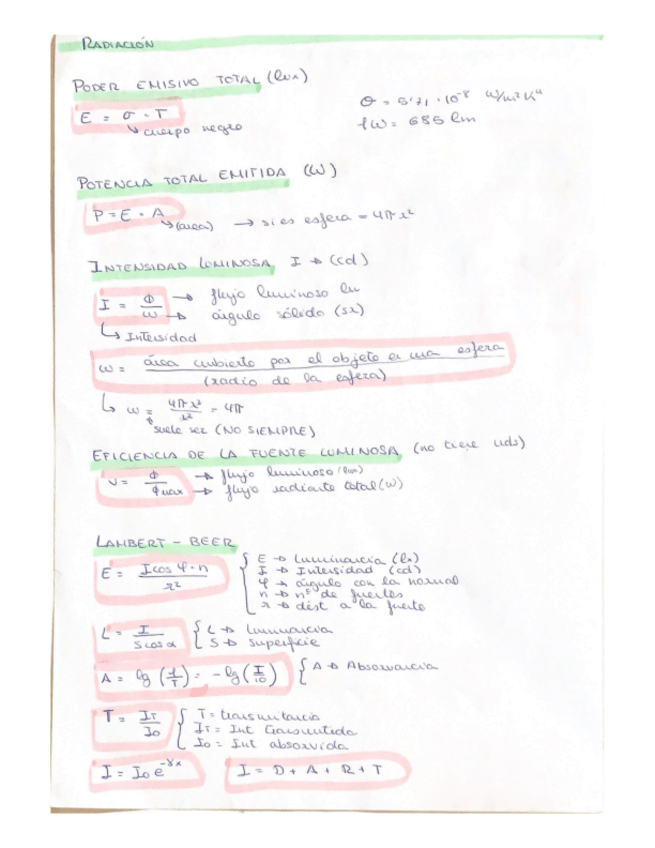 RADIACIÓN
PODER EMISIVO TOTAL (lux)
E = σ · T
↳ cuerpo negro
σ = 5'71 · 10⁻⁸ W/m²K⁴
1W = 685 lm
POTENCIA TOTAL EMITIDA (W)
P = E · A
↳ (área) → si es esfera = 4πr²
INTENSIDAD LUMINOSA I → (cd)
I = Φ/ω → flujo luminoso lu
→ ángulo sólido (sr)
↳ Intensidad
ω = área cubierto por el objeto en una esfera / (radio de la esfera)
↳ ω = 4πr²/r² = 4π
suele ser (NO SIEMPRE)
EFICIENCIA DE LA FUENTE LUMINOSA (no tiene uds)
V = Φ/Φmax → flujo luminoso (lux)
→ flujo radiante total (W)
LAMBERT - BEER
E = I cos φ · n / r²
E → Luminancia (lx)
I → Intensidad (cd)
φ → ángulo con la normal
n → nº de fuertes
r → dist a la fuerte
L = I / S cos α { L → Luminancia
S → Superficie
A = lg (1/T) = - lg (I/I0) { A → Absorvancia
T = IT/I0 { T = transmitancia
IT = Int transmitida
I0 = Int absorvida
I = I0 e^-γx
I = D + A + R + T